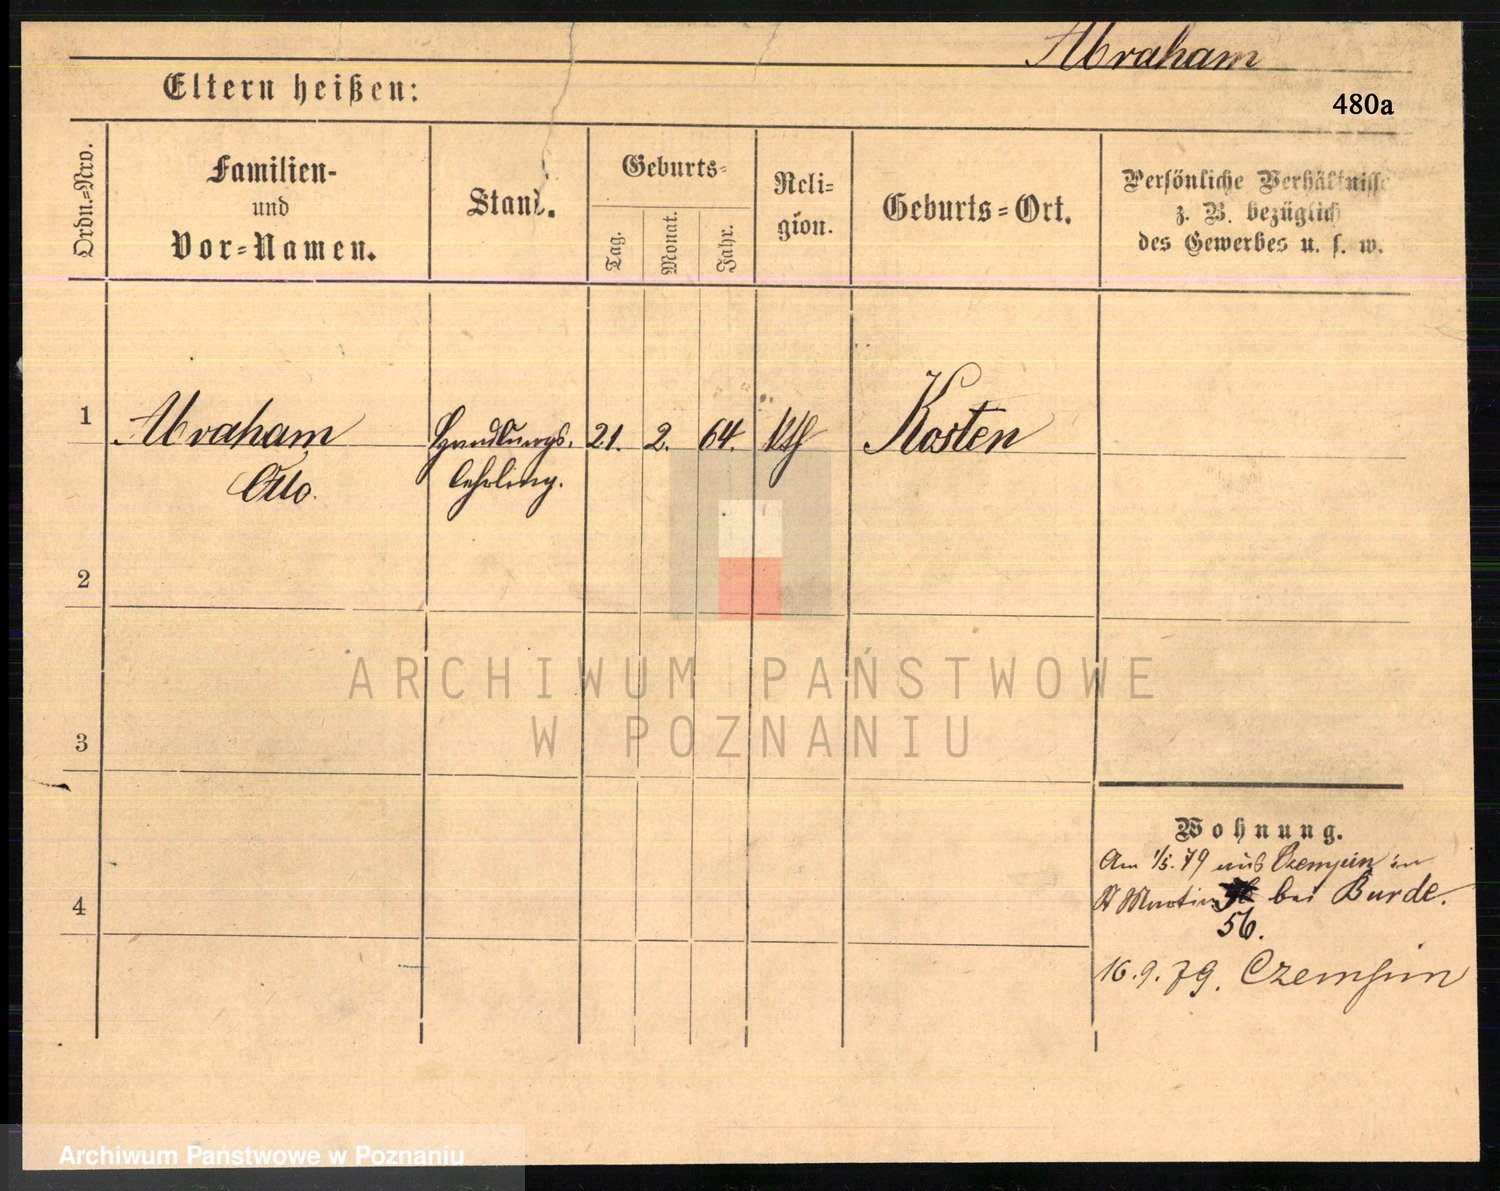 Abraham
Eltern heißen:
480a
Ordn.=Nro.
Familien-
und
Vor=Namen.
Stand.
Geburts=
Tag.
Monat.
Jahr.
Reli=
gion.
Geburts=Ort.
Persönliche Verhältnisse
z. B. bezüglich
des Gewerbes u. s. w.
1
Abraham
Otto.
Handlungs.
lehrling.
21. 2. 64.
Kosten
2
ARCHIWUM PAŃSTWOWE
W POZNANIU
3
Wohnung.
Am 1/5. 79 aus Czempin in
St Martin bei Burde.
56.
4
16. 9. 79. Czempin
Archiwum Państwowe w Poznaniu